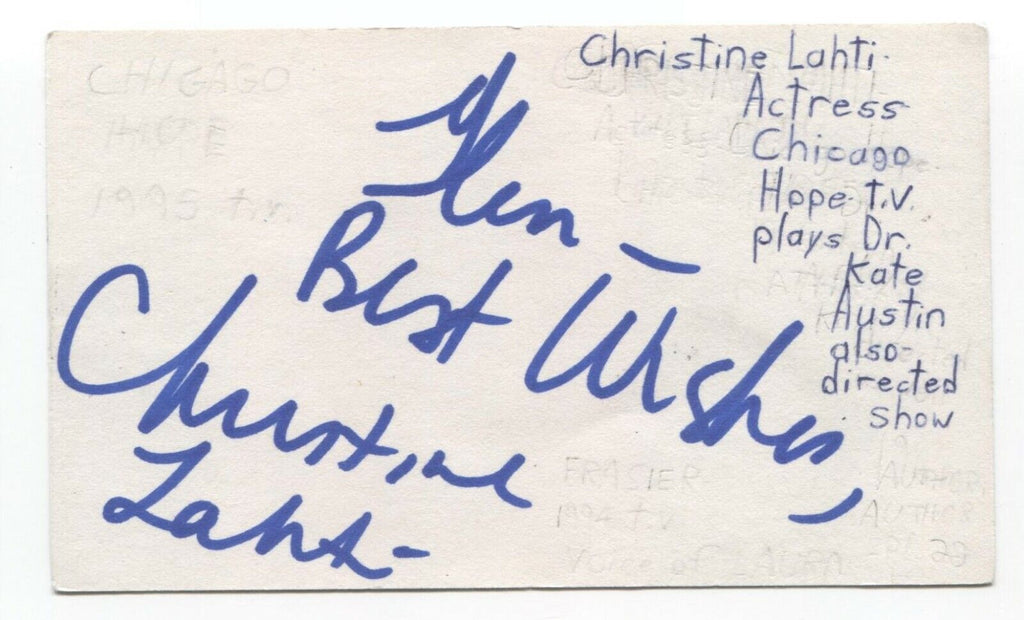 Christine Lahti-
Actress
Chicago
Hope t.v.
plays Dr.
Kate
Austin
also-
directed
show
Glen –
Best Wishes,
Christine
Lahti
CHICAGO
HOPE
1995 t.v.
FRASIER
1994 t.v.
Voice of
AUTHOR,
AUTHOR